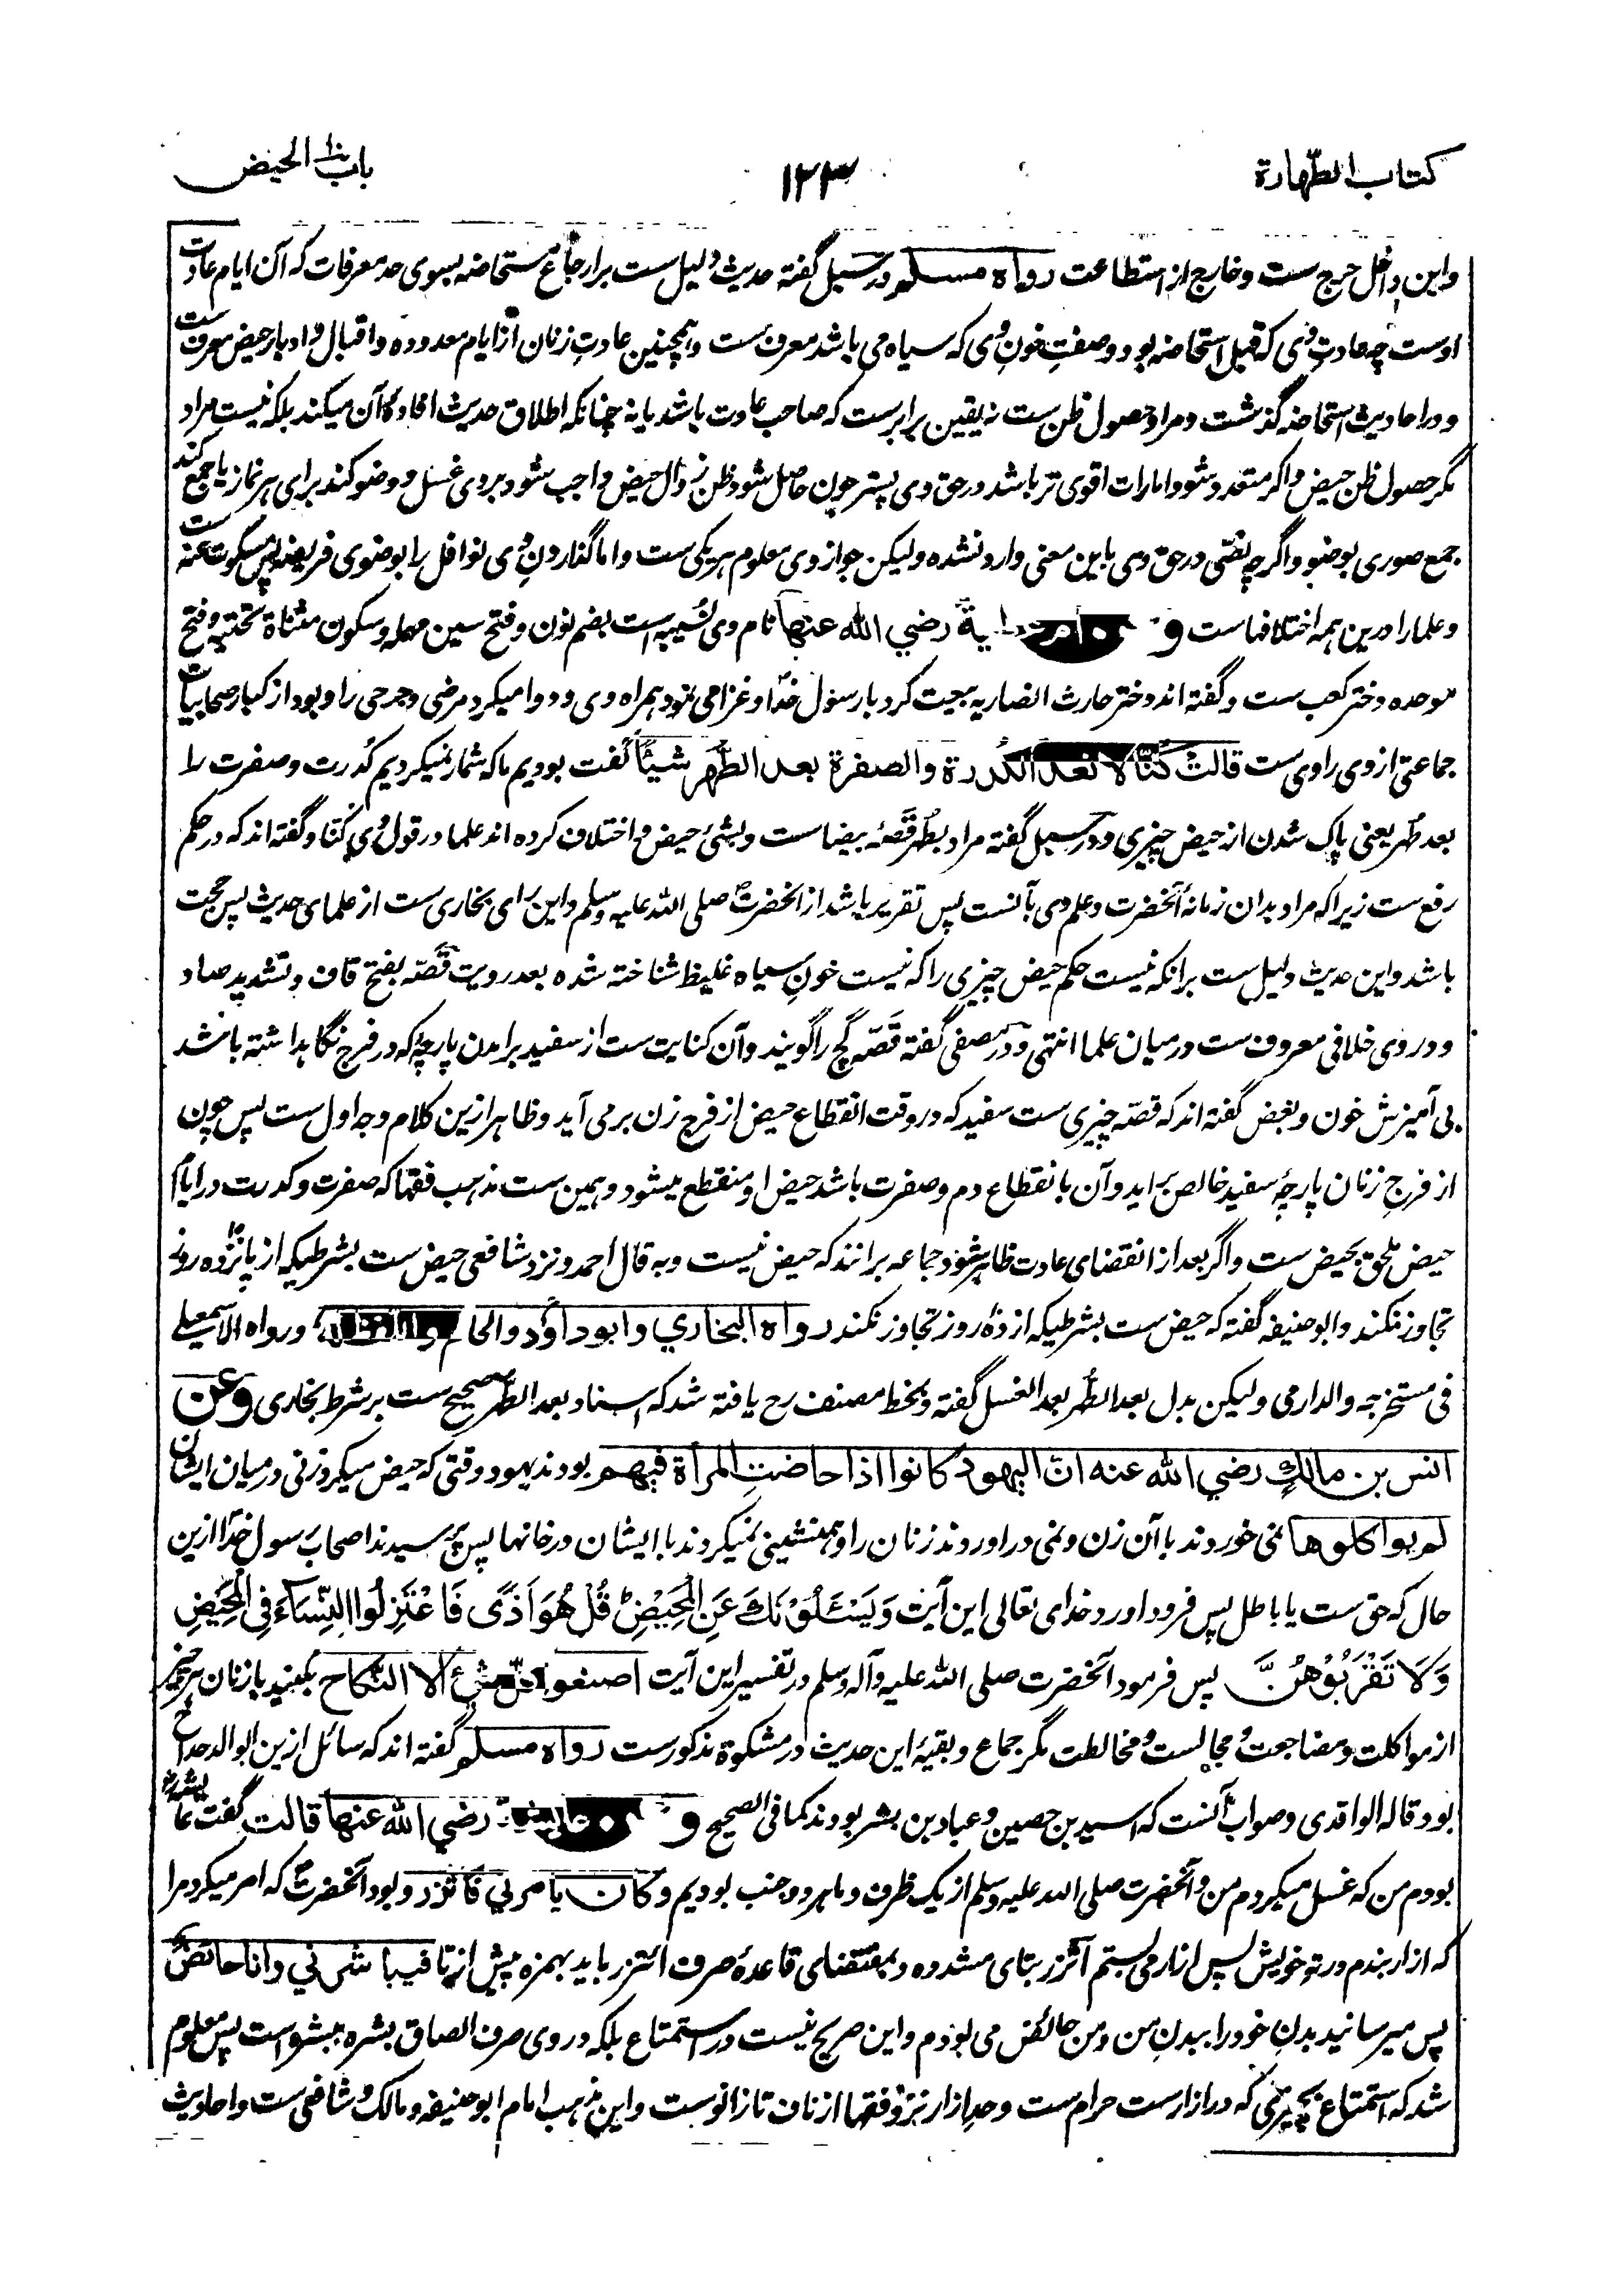 كتاب الطهارة
١٢٣
باب الحيض
واین داخل حرج ست وخارج از استطاعت رواه مسلم ودر سبل گفته حدیث دلیل ست برارجاع مستحاضه بسوی حد معرفات که آن ایام عادت
اوست چه عادت وی که قبل استحاضه بود وصفت خون وی که سیاه می باشد معرف ست وهمچنین عادت زنان از ایام معدوده واقبال وادبار حیض معرف ست
ودر احادیث استحاضه گذشت ومراد حصول ظن ست نه یقین برابر ست که صاحب عادت باشد یا نه چنانکه اطلاق حدیث افاده آن میکند بلکه نیست مراد
مگر حصول ظن حیض واگر متعدد شود امارات اقوی تر باشد در حق وی پستر چون حاصل شود ظن زوال حیض واجب شود بر وی غسل ووضو کند برای هر نماز یا جمع کند
جمع صوری بوضو واگرچه نصی در حق وی باین معنی وارد نشده ولیکن جواز وی معلوم هر یکی ست واما گذاردن وی نوافل را بوضوی فریضه پس مسکوت عنه ست
وعلما را درین همه اختلافهاست و ية رضي الله عنها نام وی نُسیبه است بضم نون وفتح سین مهمله وسکون مثناة تحتیه وفتح
موحده دختر کعب ست وگفته اند دختر حارث انصاریه بیعت کرد با رسول خدا وغزا می نمود همراه وی ودوا میکرد مرضی وجرحی را وبود از کبار صحابیات
جماعتی از وی راوی ست قالت كُنّا لا نعد الكدرة والصفرة بعد الطُّهر شيئًا گفت بودیم ما که شمار نمیکردیم کُدرت وصفرت را
بعد طُهر یعنی پاک شدن از حیض چیزی ودر سبل گفته مراد بطُهر قَصّهٔ بیضاست وبشئ حیض واختلاف کرده اند علما در قول وی کنّا وگفته اند که در حکم
رفع ست زیراکه مراد بدان زمانهٔ آنحضرت وعلم وی بآنست پس تقریر باشد از آنحضرت صلی الله علیه وسلم واین رای بخاری ست از علمای حدیث پس حجت
باشد واین حدیث دلیل ست برانکه نیست حکم حیض چیزی را که نیست خون سیاه غلیظ شناخته شده بعد رویت قَصّه بفتح قاف وتشدید صاد
ودر وی خلافی معروف ست در میان علما انتهی ودر مصفی گفته قَصّه گچ را گویند وآن کنایت ست از سفید برامدن پارچه که در فرج نگاهداشته باشد
بی آمیزش خون وبعض گفته اند که قصّه چیزی ست سفید که در وقت انقطاع حیض از فرج زن بر می آید وظاهر ازین کلام وجه اول ست پس چون
از فرج زنان پارچهٔ سفید خالص براید وآن بانقطاع دم وصفرت باشد حیض او منقطع میشود وهمین ست مذهب فقها که صفرت وکدرت در ایام
حیض ملحق بحیض ست واگر بعد از انقضای عادت ظاهر شود جماعه برانند که حیض نیست وبه قال احمد ونزد شافعی حیض ست بشرطیکه از پانزده روز
تجاوز نکند وابو حنیفه گفته که حیض ست بشرطیکه از ده روز تجاوز نکند رواه البخاري وابو داؤد والحاكم ورواه الاسمعیلی
فی مستخرجه والدارمی ولیکن بدل بعد الطُّهر بعد الغسل گفته وبخط مصنف رح یافته شد که اسناد بعد الطُّهر صحیح ست بر شرط بخاری وعن
انس بن مالك رضي الله عنه انّ اليهود كانوا اذا حاضتِ المرأة فيهم بودند یهود وقتی که حیض میکرد زنی در میان ایشان
لم يواكلوها نمی خوردند با آن زن ونمی دراوردند زنان را وهمنشینی نمیکردند با ایشان در خانها پس پرسیدند اصحاب رسول خدا ازین
حال که حق ست یا باطل پس فرود اورد خدای تعالی این آیت وَيَسْئَلُوْنَكَ عَنِ الْمَحِيْضِ قُلْ هُوَ اَذًى فَاعْتَزِلُوا النِّسَآءَ فِى الْمَحِيْضِ
وَلَا تَقْرَبُوْهُنَّ پس فرمود آنحضرت صلی الله علیه وآله وسلم در تفسیر این آیت اصنعوا كلّ شئ الا النّكاح بکنید با زنان هر چیز
از مواکلت ومضاجعت ومجالست ومخالطت مگر جماع وبقیهٔ این حدیث در مشکوة مذکور ست رواه مسلم گفته اند که سائل ازین ابو الدحداح
بود قاله الواقدی وصواب آنست که اسید بن حصین وعباد بن بشر بودند کما فی الصحیح و رضي الله عنها قالت گفت عائشه
بودم من که غسل میکردم من وآنحضرت صلی الله علیه وسلم از یک ظرف وما هر دو جنب بودیم وكان يامرني فاتزر وبود آنحضرت که امر میکرد مرا
که ازار بندم در تو خویش پس ازار می بستم اتّزر بتای مشدده وبمقتضای قاعدهٔ صرف ائتزر باید بهمزه پیش از تا فيباشرني وانا حائضٌ
پس میرسانید بدن خود را ببدن من ومن حائض می بودم واین صریح نیست در استمتاع بلکه در وی صرف الصاق بشره ببشره است پس معلوم
شد که استمتاع بچیزی که در ازار ست حرام ست وحد ازار نزد فقها از ناف تا زانوست واین مذهب امام ابو حنیفه ومالک وشافعی ست واحادیث